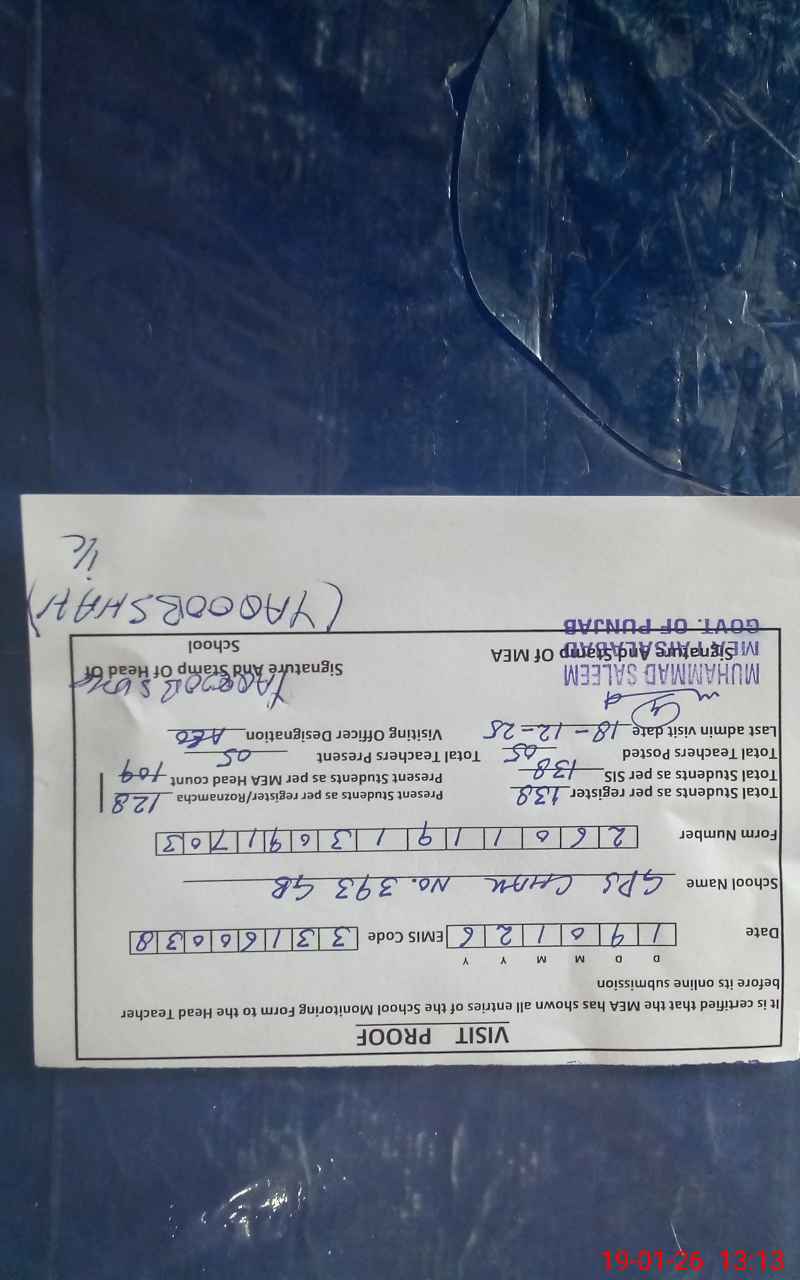 VISIT PROOF
It is certified that the MEA has shown all entries of the School Monitoring Form to the Head Teacher
before its online submission
D D M M Y Y
Date 1 9 0 1 2 6 EMIS Code 3 3 1 6 0 0 3 8
School Name GPS CHAK NO. 393 GB
Form Number 2 6 0 1 1 9 1 3 0 9 1 7 0 3
Total Students as per register 138 Present Students as per register/Roznamcha 128
Total Students as per SIS 138 Present Students as per MEA Head count 109
Total Teachers Posted 05 Total Teachers Present 05
Last admin visit date 18-12-25 Visiting Officer Designation AEO
MUHAMMAD SALEEM
Signature And Stamp Of MEA Signature And Stamp Of Head Of
School
GOVT. OF PUNJAB
(YAQOOB SHAH)
i/c
19-01-26 13:13